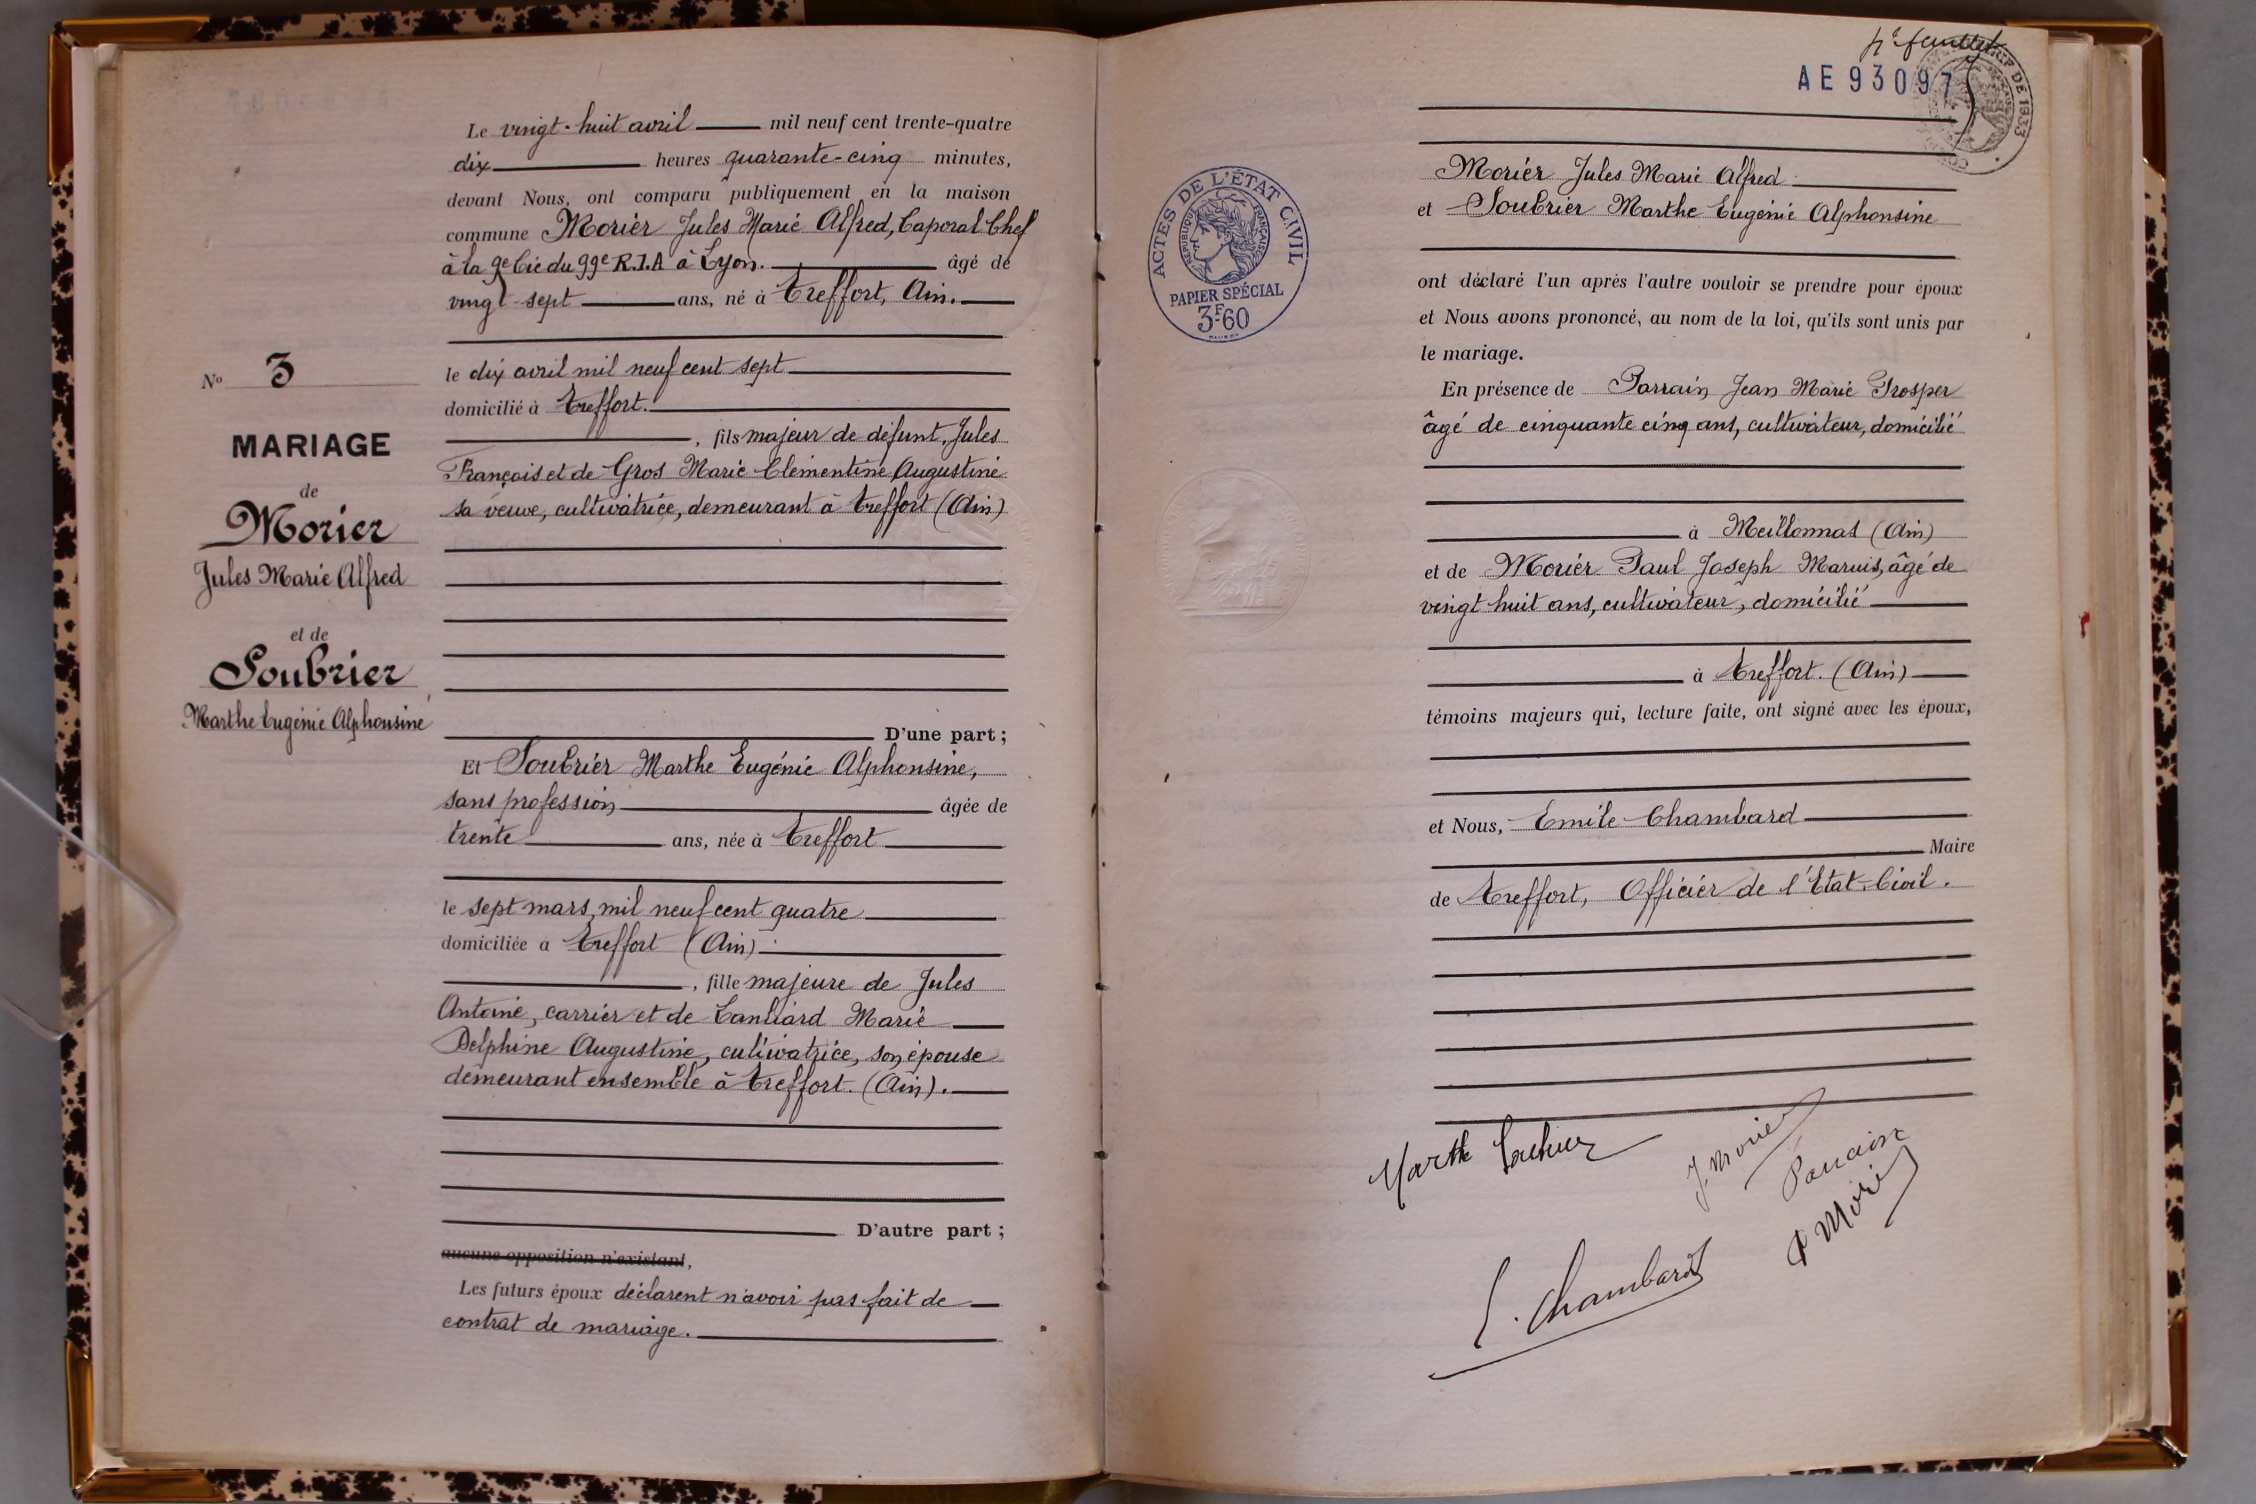 Le vingt-huit avril mil neuf cent trente-quatre
dix heures quarante-cinq minutes,
devant Nous, ont comparu publiquement en la maison
commune Morier Jules Marie Alfred, Caporal Chef
à la 9e Cie du 99e R.I.A à Lyon. âgé de
vingt-sept ans, né à Treffort, Ain.
le dix avril mil neuf cent sept
domicilié à Treffort.
, fils majeur de défunt, Jules
François et de Gros Marie Clémentine Augustine
sa veuve, cultivatrice, demeurant à Treffort (Ain)
D'une part ;
Et Soubrier Marthe Eugénie Alphonsine,
sans profession âgée de
trente ans, née à Treffort
le sept mars, mil neuf cent quatre
domiciliée à Treffort (Ain).
, fille majeure de Jules
Antoine, carrier et de Marie
Delphine Augustine, cultivatrice, son épouse
demeurant ensemble à Treffort. (Ain).
D'autre part ;
aucune opposition n'existant,
Les futurs époux déclarent n'avoir pas fait de
contrat de mariage.
No 3
MARIAGE
de
Morier
Jules Marie Alfred
et de
Soubrier
Marthe Eugénie Alphonsine
feuillet
AE 93097
DE 1933
ACTES DE L'ÉTAT CIVIL
RÉPUBLIQUE FRANÇAISE
PAPIER SPÉCIAL
3F60
Morier Jules Marie Alfred
et Soubrier Marthe Eugénie Alphonsine
ont déclaré l'un après l'autre vouloir se prendre pour époux
et Nous avons prononcé, au nom de la loi, qu'ils sont unis par
le mariage.
En présence de Parrain Jean Marie Prosper
âgé de cinquante cinq ans, cultivateur, domicilié
à Meillonnas (Ain)
et de Morier Paul Joseph Marius, âgé de
vingt-huit ans, cultivateur, domicilié
à Treffort. (Ain)
témoins majeurs qui, lecture faite, ont signé avec les époux,
et Nous, Emile Chambard
Maire
de Treffort, Officier de l'Etat-Civil.
Marthe Soubrier
J. Morier
Parrain
P Morier
E. Chambard